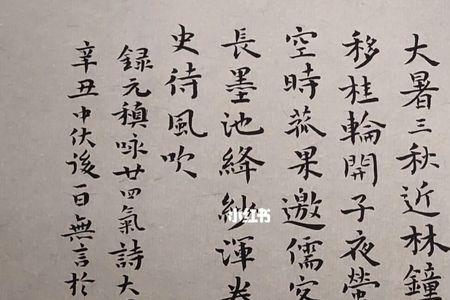 大暑三秋近林鐘
移桂輪開子夜螢
空時菰果邀儒客
長墨池絳紗渾卷
史待風吹
録元稹咏廿四氣詩大
辛丑中伏後一日無言於
小红书